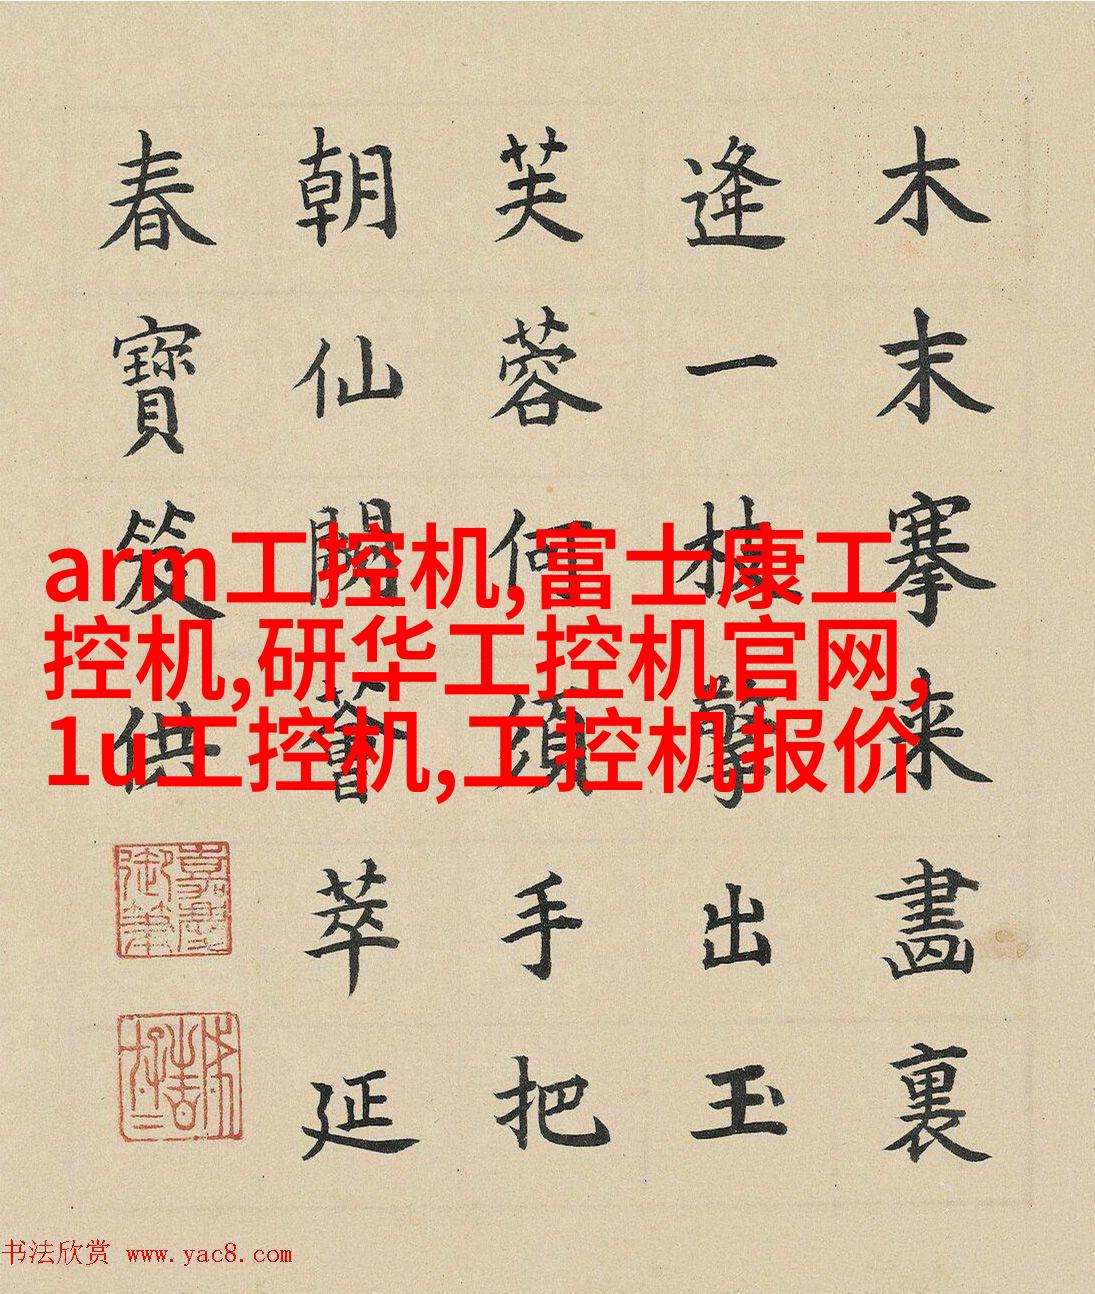 木末搴来畫裏
逢一枝擎出玉
芙蓉何須手把
朝仙闕薈萃延
春寶笈供
嘉慶御筆
arm工控机,富士康工
控机,研华工控机官网,
1u工控机,工控机报价
书法欣赏 www.yac8.com